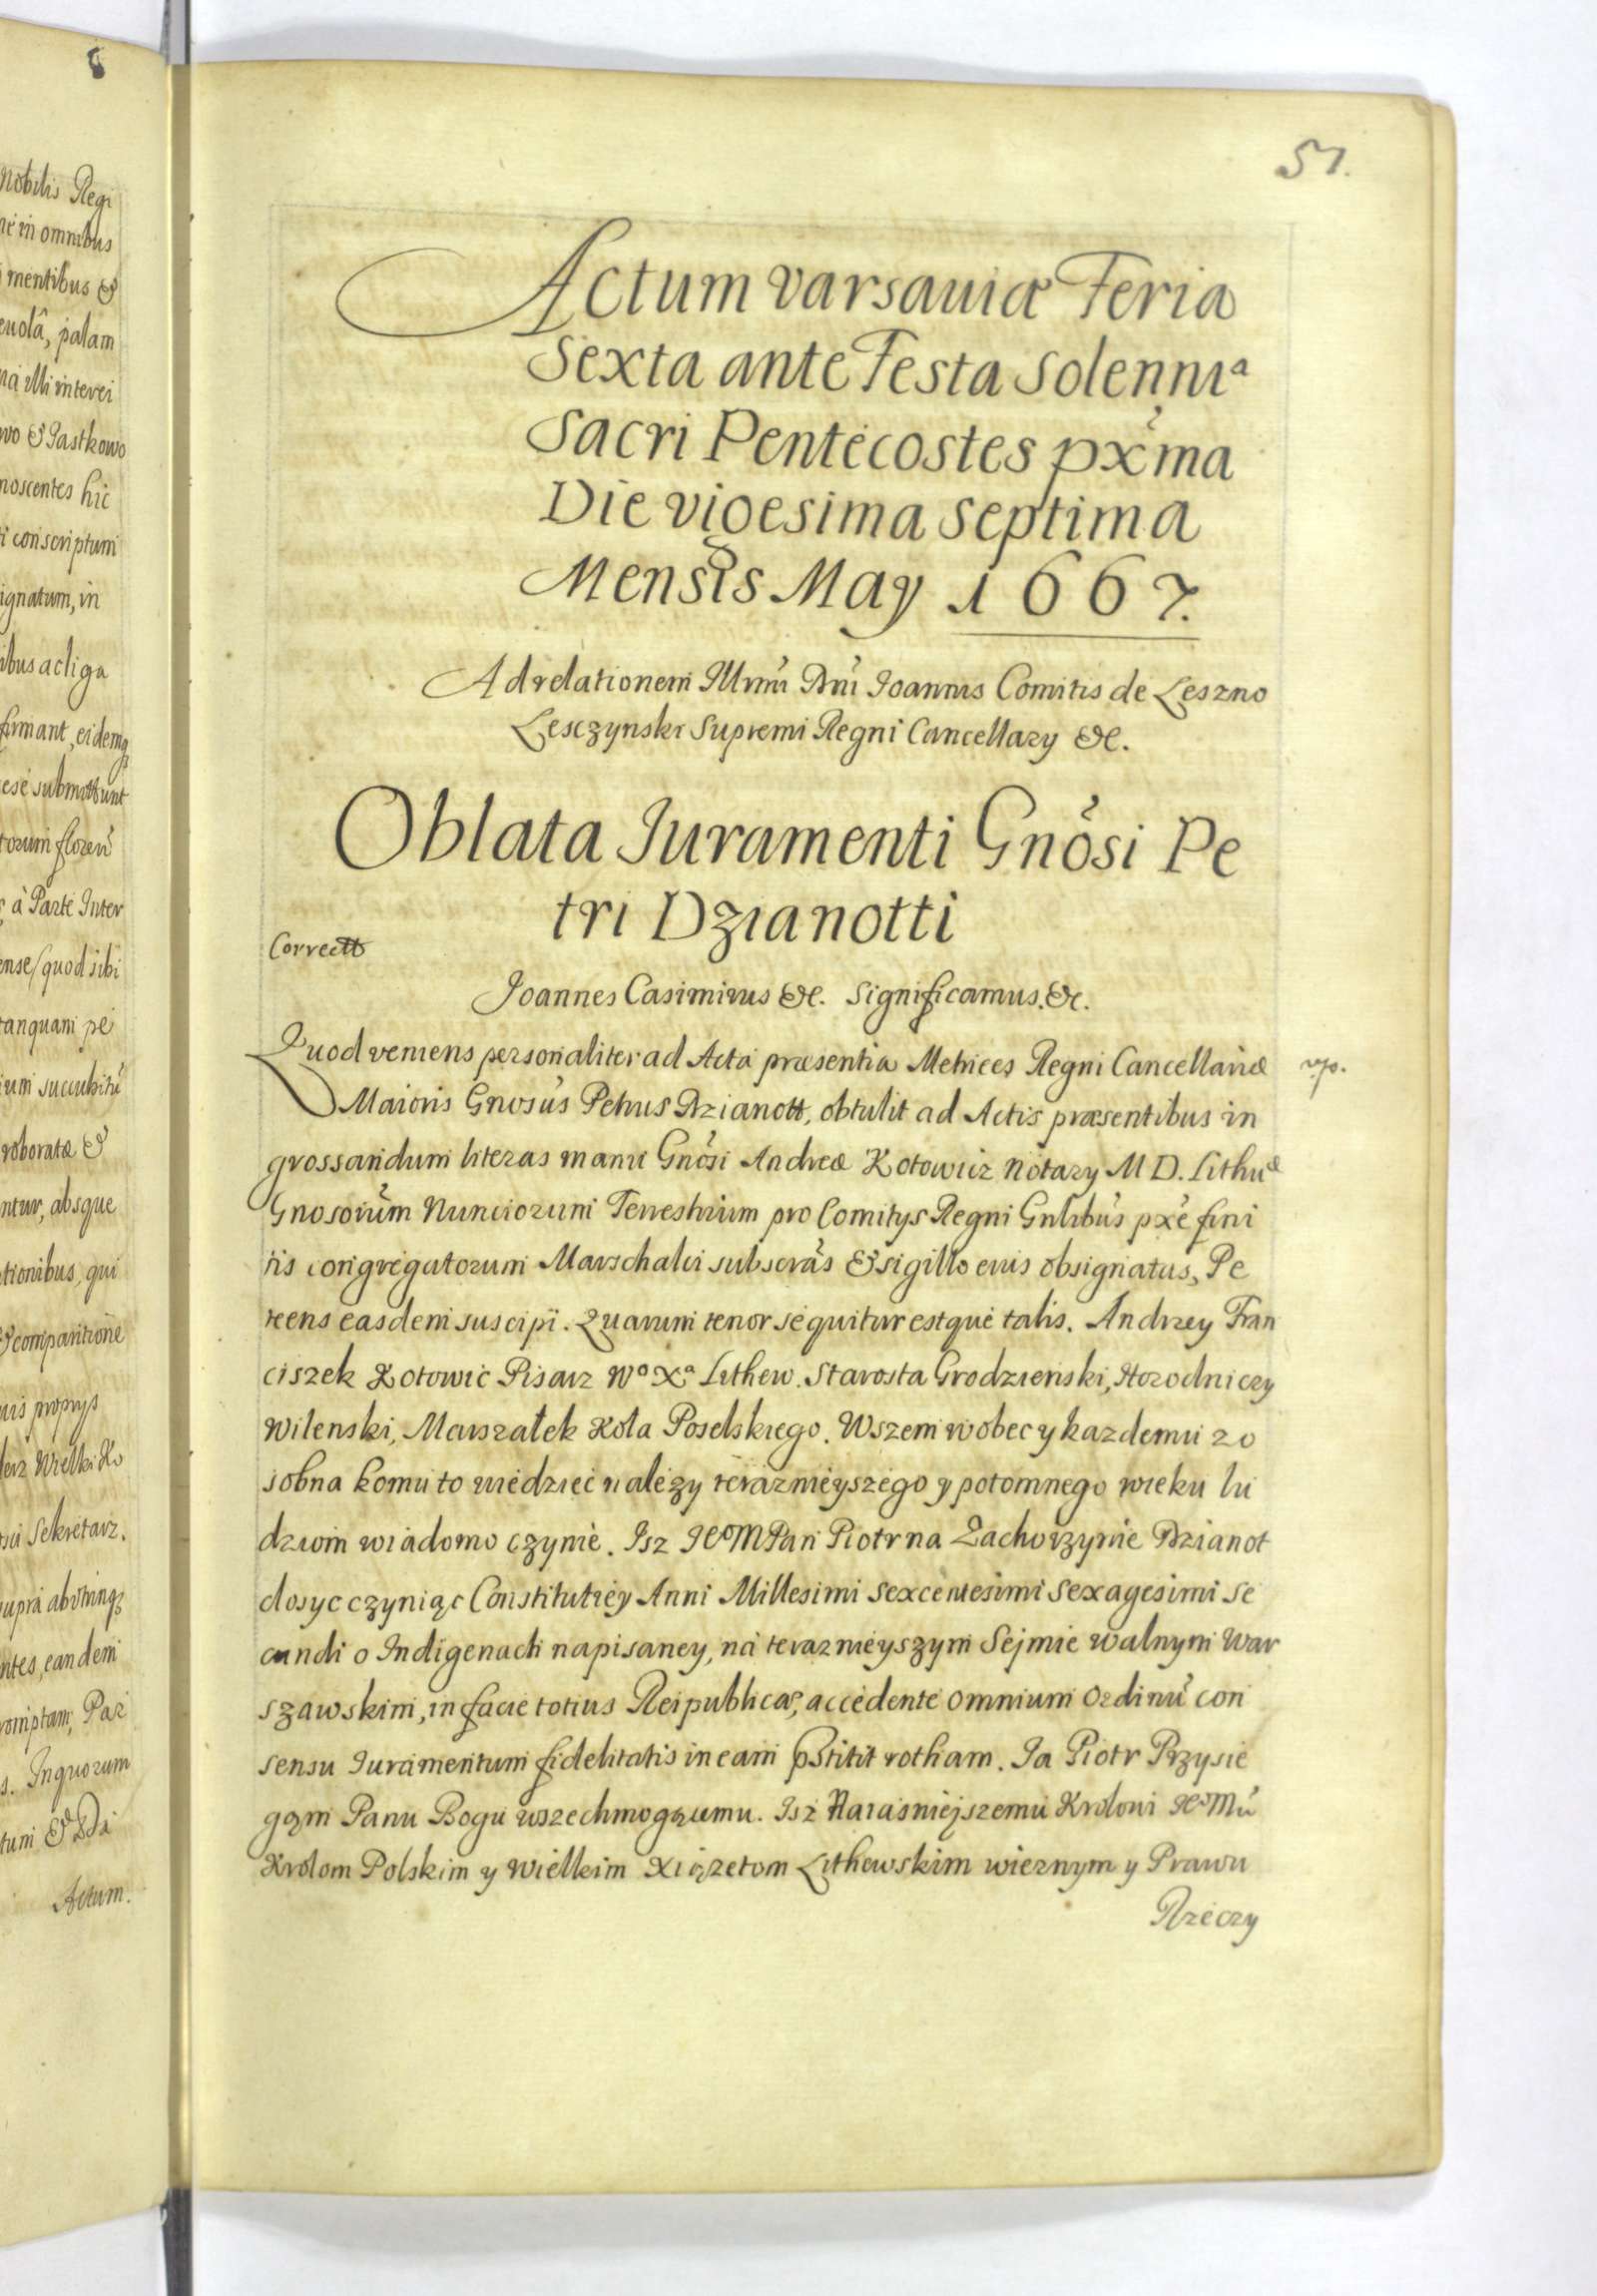 nobilis Regi
in omnibus
mentibus &
palam
illi interei
& Pastkowo
noscentes hic
conscriptum
ignatum, in
ibus ac liga
firmant, eidemq3
ese submittunt
torum floren̉
à Parte Inter
ense / quod sibi
tanquam pe
um succubitu̓
roboratæ &
ntur, absque
tionibus, qui
& comparitione
uis proprys
Wielki Ko
Sekretarz.
supra
ntes, eandem
romptam, Par
s. In quorum
tum &
Actum.
51.
Actum Varsauiæ Feria
Sexta ante Festa Solennia
Sacri Pentecostes px̓ma
Die vigesima septima
Mensis May 1667.
Ad relationem Illmi̓ Dni̓ Joannis Comitis de Leszno
Lesczynski Supremi Regni Cancellary &c.
Oblata Juramenti Gno̓si Pe
tri Dzianotti
Correctt
Joannes Casimirus &c. Significamus. &c.
Quod veniens personaliter ad Acta præsentia Metrices Regni Cancellariæ
vp.
Maioris Gnosu̓s Petrus Dzianott, obtulit ad Actis præsentibus in
grossandum literas manu Gno̓si Andreæ Kotowicz Notary M D. Lithuæ
Gnosoru̓m Nunciorum Terrestrium pro Comitys Regni Gnlibu̓s px̓e fini
tis congregatorum Marschalci subscra̓s & sigillo eius obsignatas, Pe
tens easdem suscipi. Quarum tenor sequitur estque talis. Andrzey Fran
ciszek Kotowic Pisarz Wo Xa Lithew. Starosta Grodzienski, Horodniczy
Wilenski, Marszałek Koła Poselskiego. Wszem wobec y kazdemu zo
sobna komu to wiedziec nalezy teraznieyszego y potomnego wieku lu
dziom wiadomo czynie. Isz JeoMPan Piotr na Zachorzynie Dzianot
dosyc czyniąc Constitutiey Anni Millesimi Sexcentesimi Sexagesimi Se
cundi o Indigenach napisaney, na terazniejszym Sejmie walnym War
szawskim, in facie totius Reipublicæ, accedente omnium Ordinu̓ con
sensu Juramentum fidelitatis in eam pstitit rotham. Ja Piotr Przysie
gąm Panu Bogu wszechmogącemu. Isz Naiasniejszemu Krolowi JeoMu̓
Krolom Polskim y Wielkim Xiązetom Lithewskim wiernym y Prawu
Rzeczy